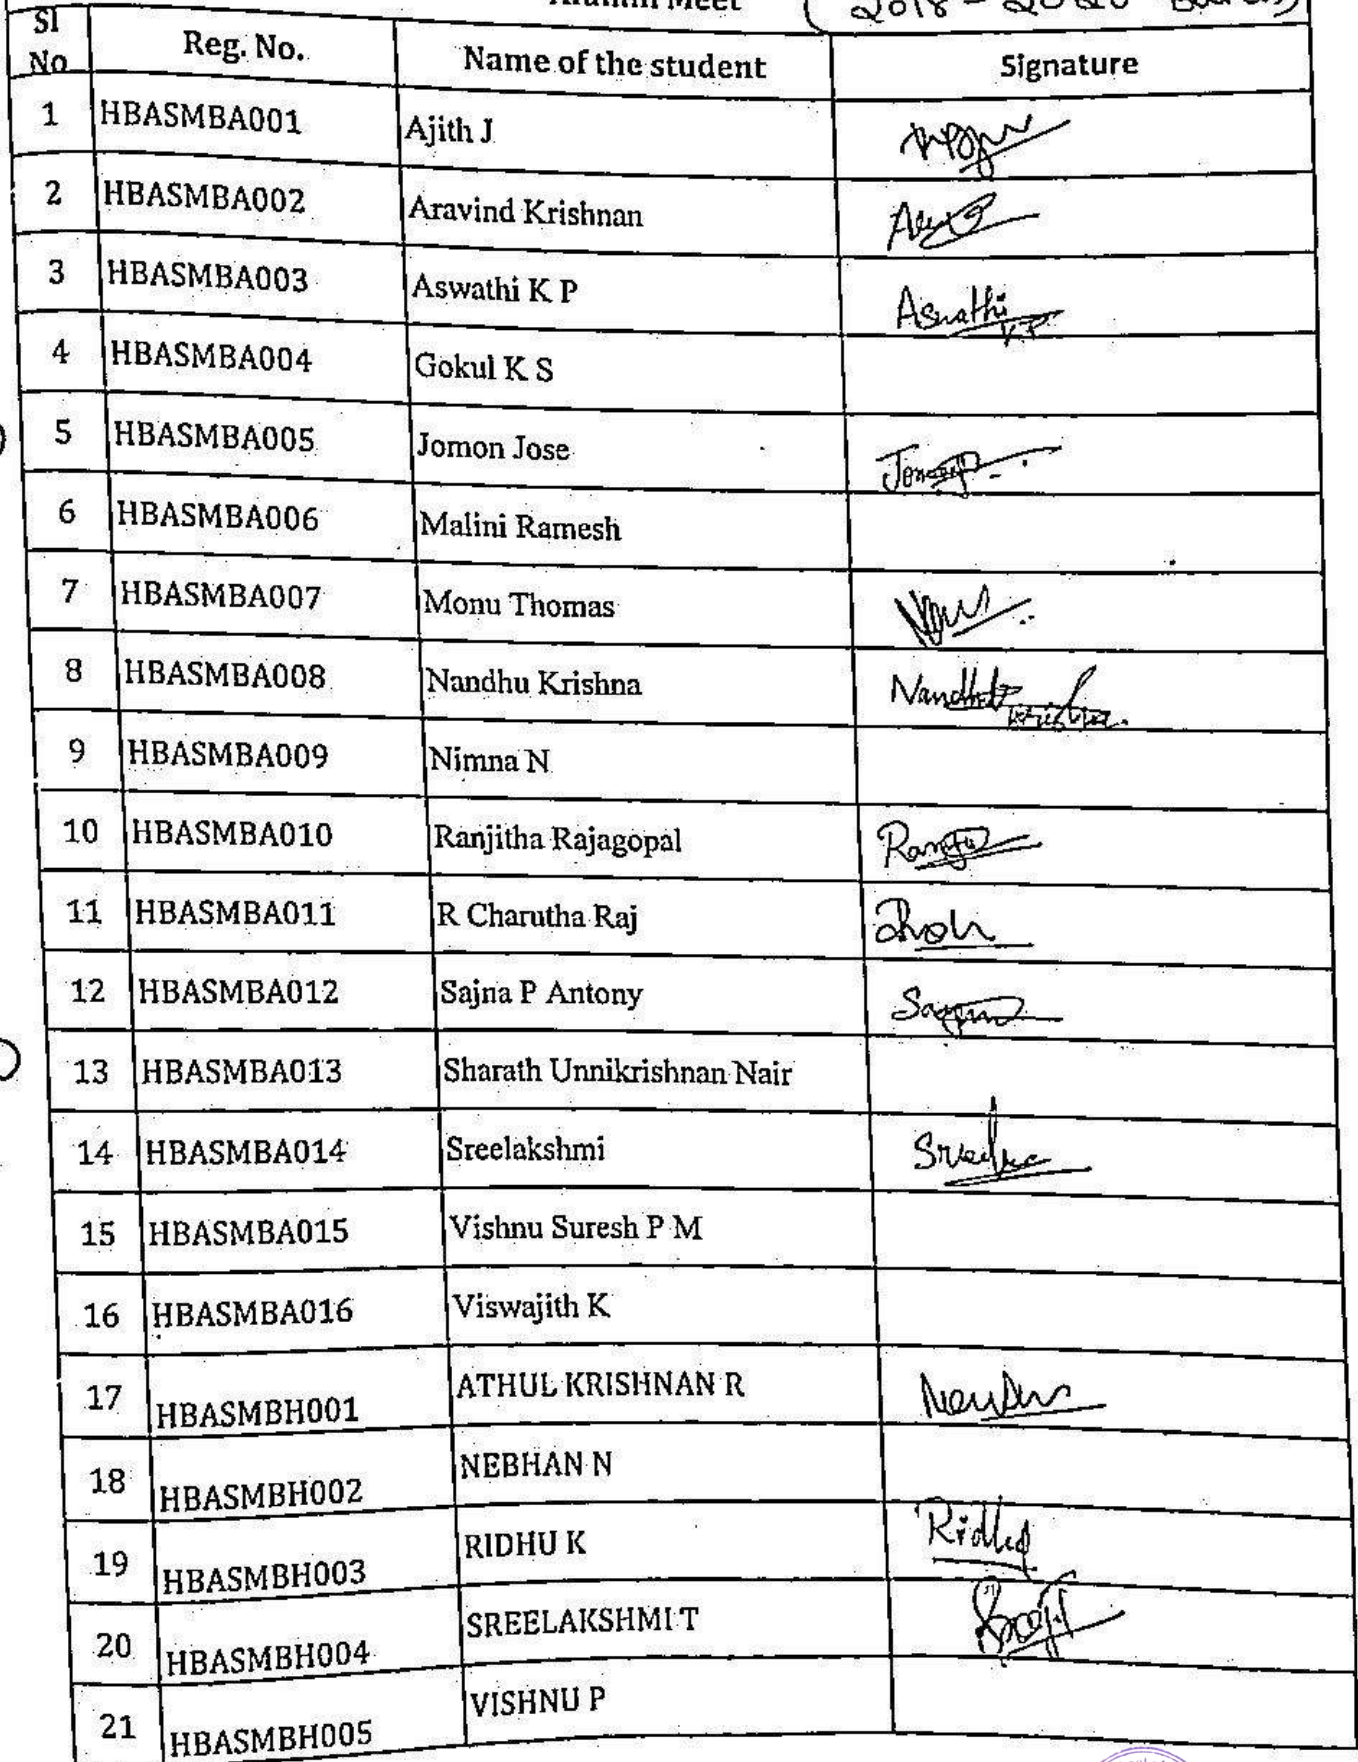 Alumni Meet (2018 - 2020 Batch)
Sl No Reg. No. Name of the student Signature
1 HBASMBA001 Ajith J
2 HBASMBA002 Aravind Krishnan
3 HBASMBA003 Aswathi K P Aswathi K.P
4 HBASMBA004 Gokul K S
5 HBASMBA005 Jomon Jose
6 HBASMBA006 Malini Ramesh
7 HBASMBA007 Monu Thomas
8 HBASMBA008 Nandhu Krishna Nandhu Krishna
9 HBASMBA009 Nimna N
10 HBASMBA010 Ranjitha Rajagopal
11 HBASMBA011 R Charutha Raj
12 HBASMBA012 Sajna P Antony
13 HBASMBA013 Sharath Unnikrishnan Nair
14 HBASMBA014 Sreelakshmi
15 HBASMBA015 Vishnu Suresh P M
16 HBASMBA016 Viswajith K
17 HBASMBH001 ATHUL KRISHNAN R
18 HBASMBH002 NEBHAN N
19 HBASMBH003 RIDHU K Ridhu
20 HBASMBH004 SREELAKSHMI T
21 HBASMBH005 VISHNU P